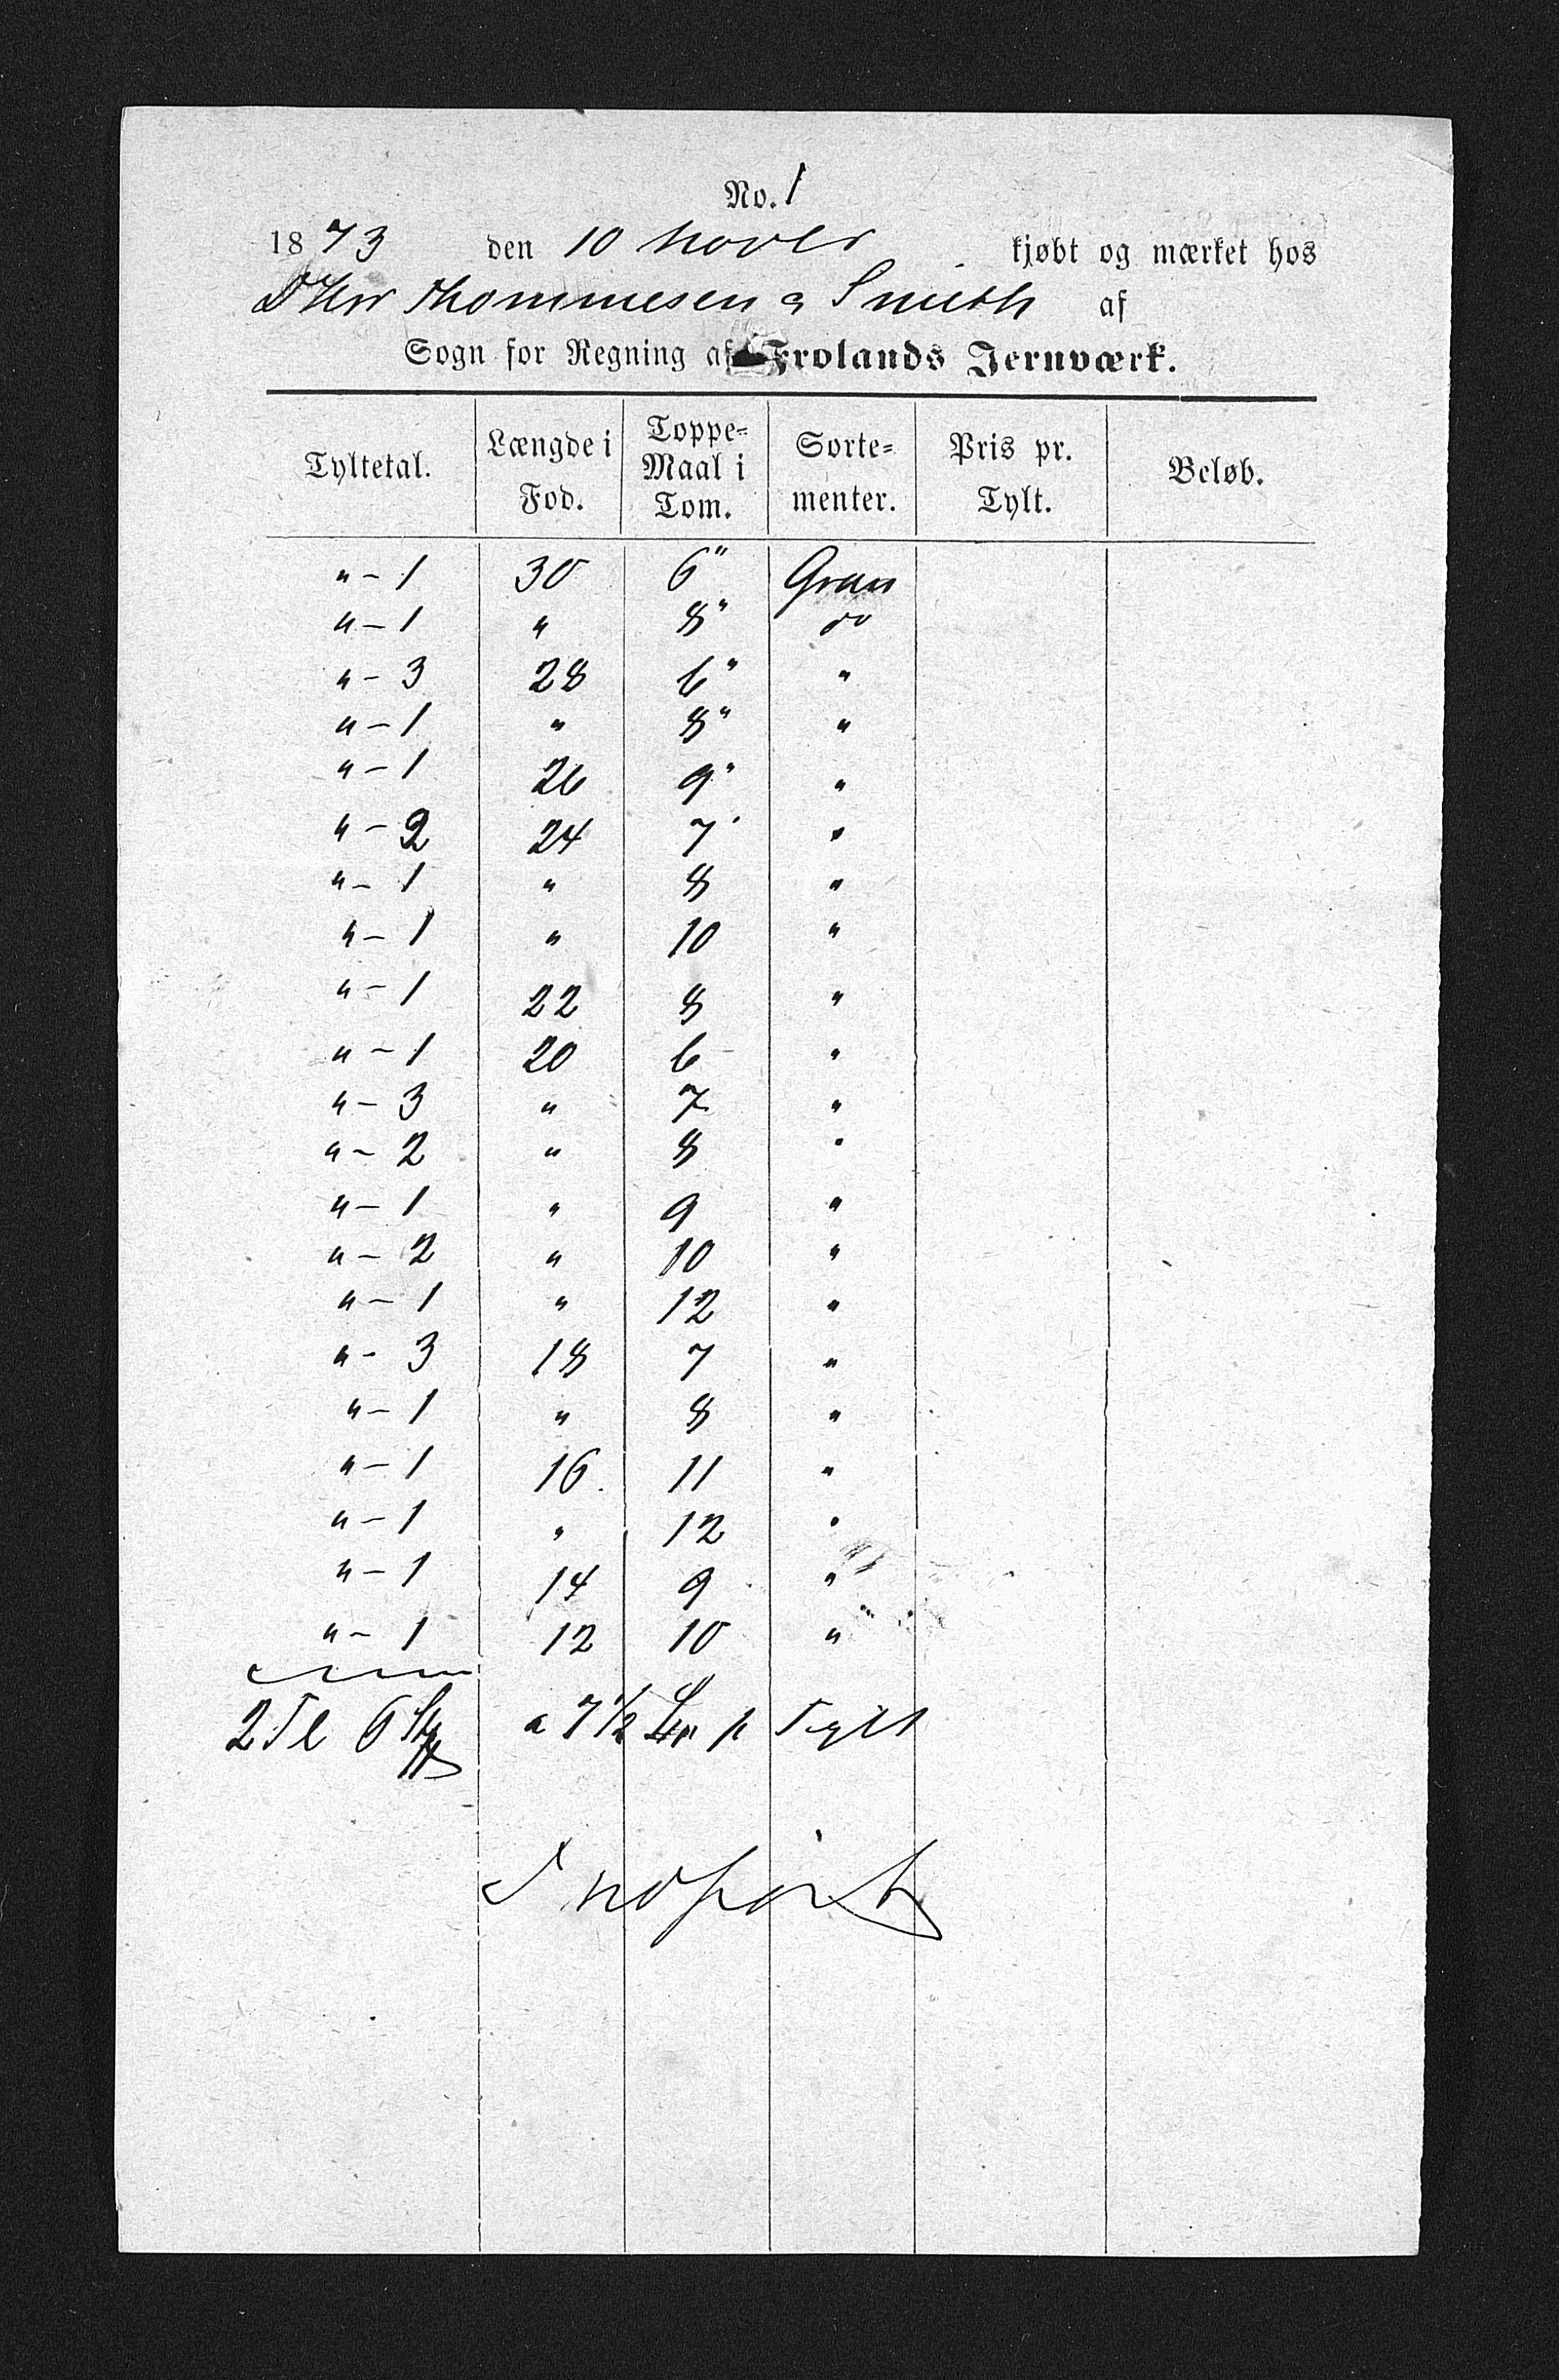 No. 1
1873 den 10 Novbr kjøbt og mærket hos
DHrr Thommesen & Smith af
Sogn for Regning af Frolands Jernværk.
Tyltetal. Længde i Fod. Toppe-Maal i Tom. Sorte-menter. Pris pr. Tylt. Beløb.
" - 1 30 6" Gran
" - 1 " 8" do
" - 3 28 6" "
" - 1 " 8" "
" - 1 26 9" "
" - 2 24 7" "
" - 1 " 8 "
" - 1 " 10 "
" - 1 22 8 "
" - 1 20 6 "
" - 3 " 7 "
" - 2 " 8 "
" - 1 " 9 "
" - 2 " 10 "
" - 1 " 12 "
" - 3 18 7 "
" - 1 " 8 "
" - 1 16 11 "
" - 1 " 12 "
" - 1 14 9 "
" - 1 12 10 "
2 Tl 6 St a 7 1/2 p Tylt
Indført